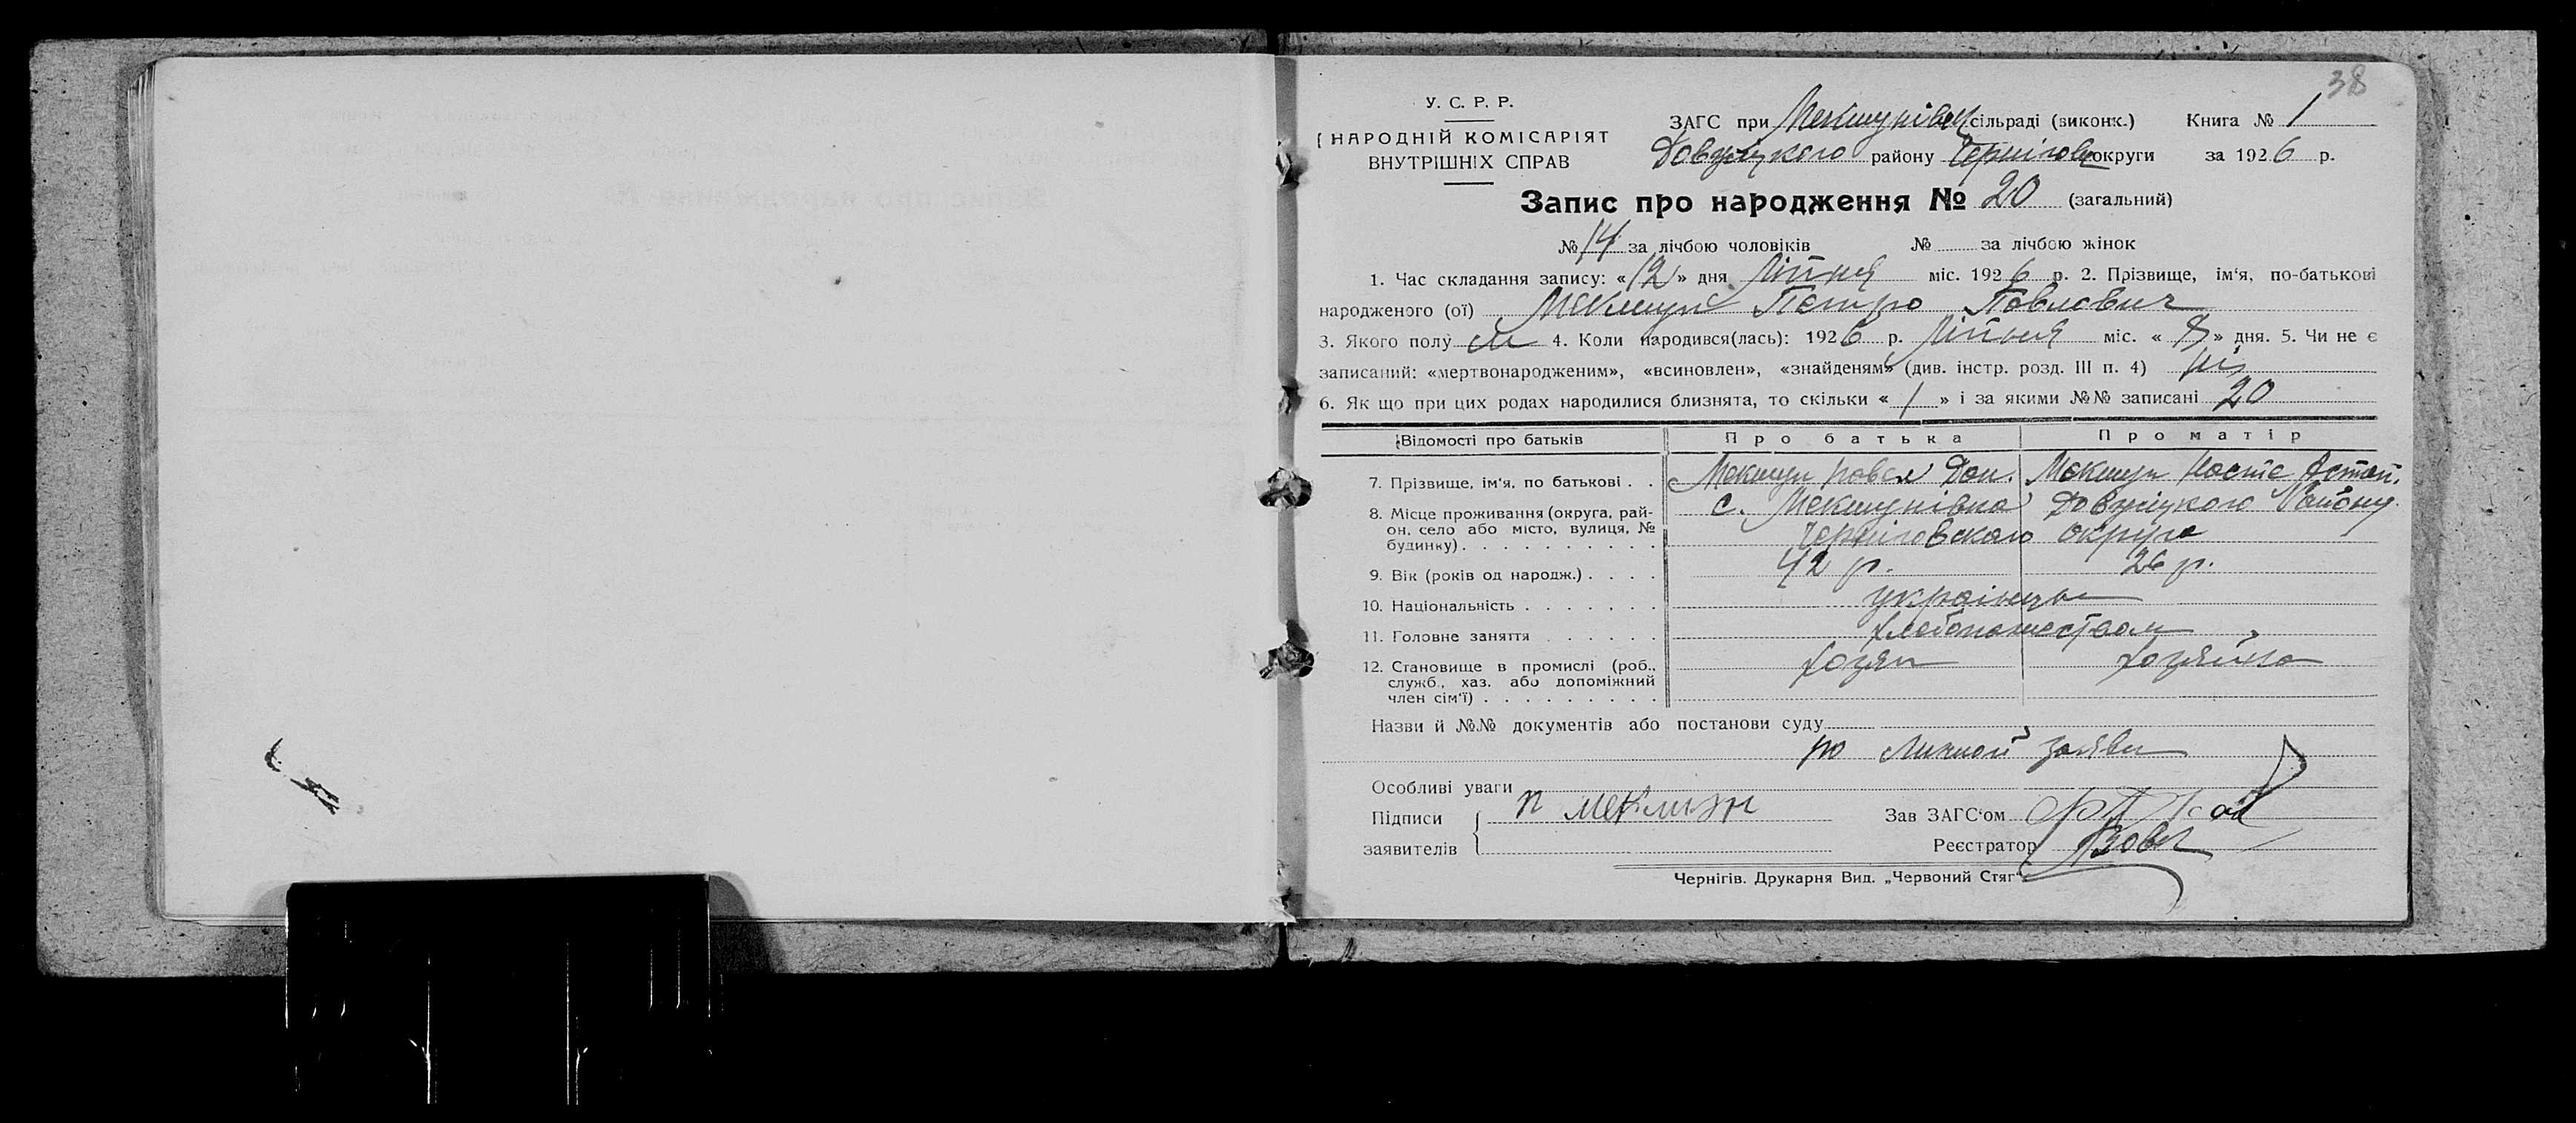 38
У. С. Р. Р.
НАРОДНІЙ КОМІСАРІЯТ
ВНУТРІШНІХ СПРАВ
ЗАГС при сільраді (виконк.) Книга № 1
району Чернігов округи за 1926 р.
Запис про народження № 20 (загальний)
№ 14 за лічбою чоловіків № за лічбою жінок
1. Час складання запису: «12» дня Липня міс. 1926 р. 2. Прізвище, ім'я, по-батькові
народженого (ої) Мекшун Петро Павлович
3. Якого полу м 4. Коли народився(лась): 1926 р. Липня міс. «8» дня. 5. Чи не є
записаний: «мертвонародженим», «всиновлен», «знайденям» (див. інстр. розд. III п. 4) ні
6. Як що при цих родах народилися близнята, то скільки «1» і за якими №№ записані 20
Відомості про батьків Про батька Про матір
7. Прізвище, ім'я, по батькові . . Мекшун Павел Мекшун
8. Місце проживання (округа, рай-
он, село або місто, вулиця, №
будинку) . . . . . . . . . .
с. Мекшунівка Району
округа
9. Вік (років од народж.) . . . . 42 р. 26 р.
10. Національність . . . . . . . українцы
11. Головне заняття . . . . . .
12. Становище в промислі (роб.,
служб., хаз. або допоміжний
член сім'ї) . . . . . . . . .
хозяин хозяйка
Назви й №№ документів або постанови суду
по личной заяви
Особливі уваги
Підписи
заявителів
П Мекшун
Зав ЗАГС'ом
Реєстратор
Чернігів. Друкарня Вид. „Червоний Стяг"